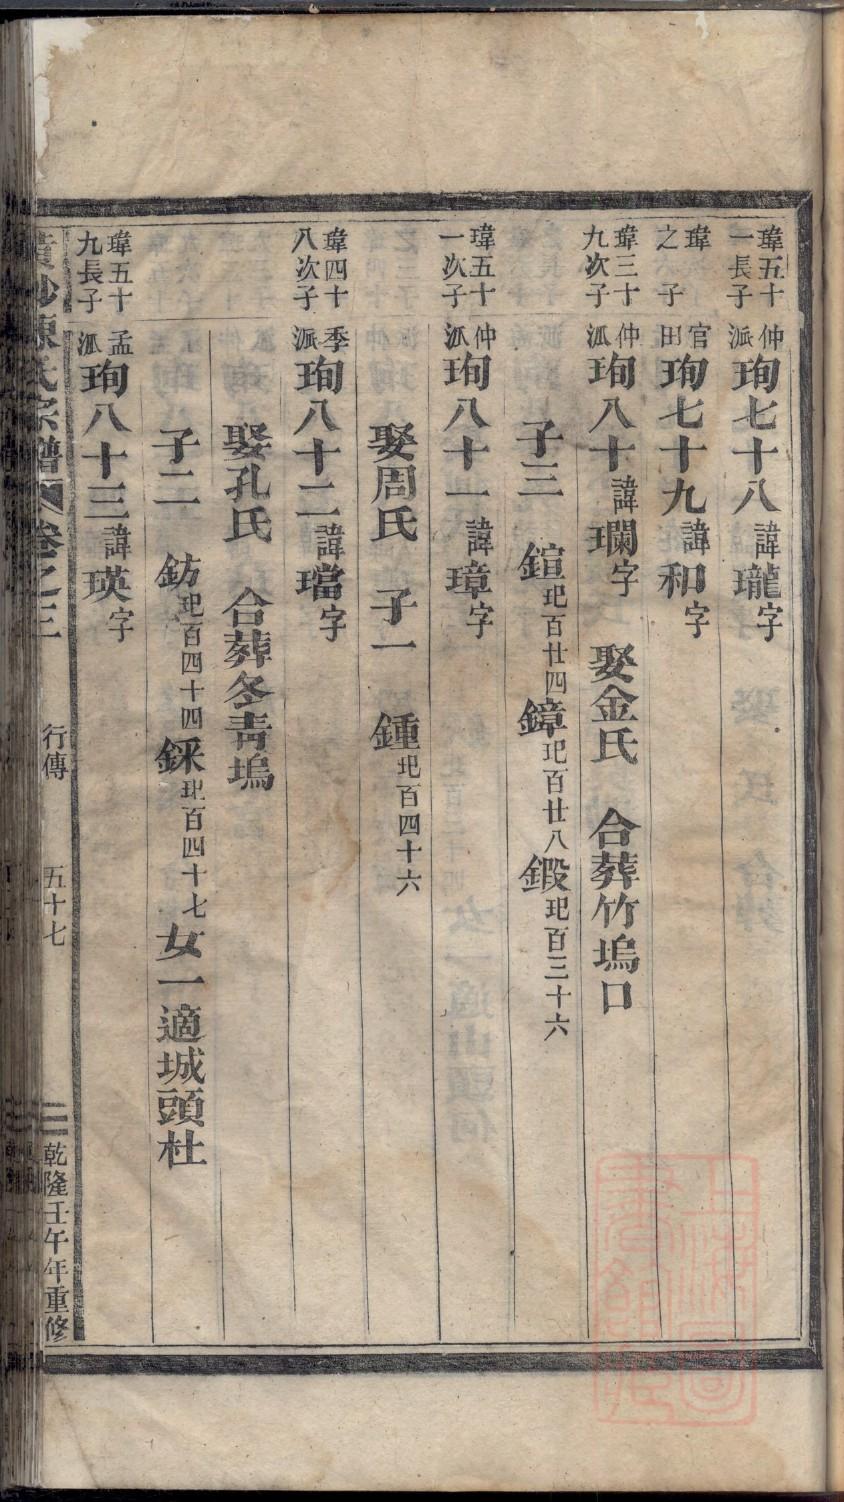 瑋五十一長子 仲派 珣七十八 諱瓏字
瑋之子 官田 珣七十九 諱和字
瑋三十九次子 仲派 珣八十 諱瓓字 娶金氏 合葬竹塢口
子三 鍹玘百廿四 鏱玘百廿八 鍛玘百三十六
瑋五十一次子 仲派 珣八十一 諱璋字
娶周氏 子一 鍾玘百四十六
瑋四十八次子 季派 珣八十二 諱璫字
娶孔氏 合葬冬青塢
子二 鈁玘百四十四 銾玘百四十七 女一適城頭杜
瑋五十九長子 孟派 珣八十三 諱瑛字
陳氏宗譜 卷之三 行傳 五十七 乾隆壬午年重修
上海圖書館藏